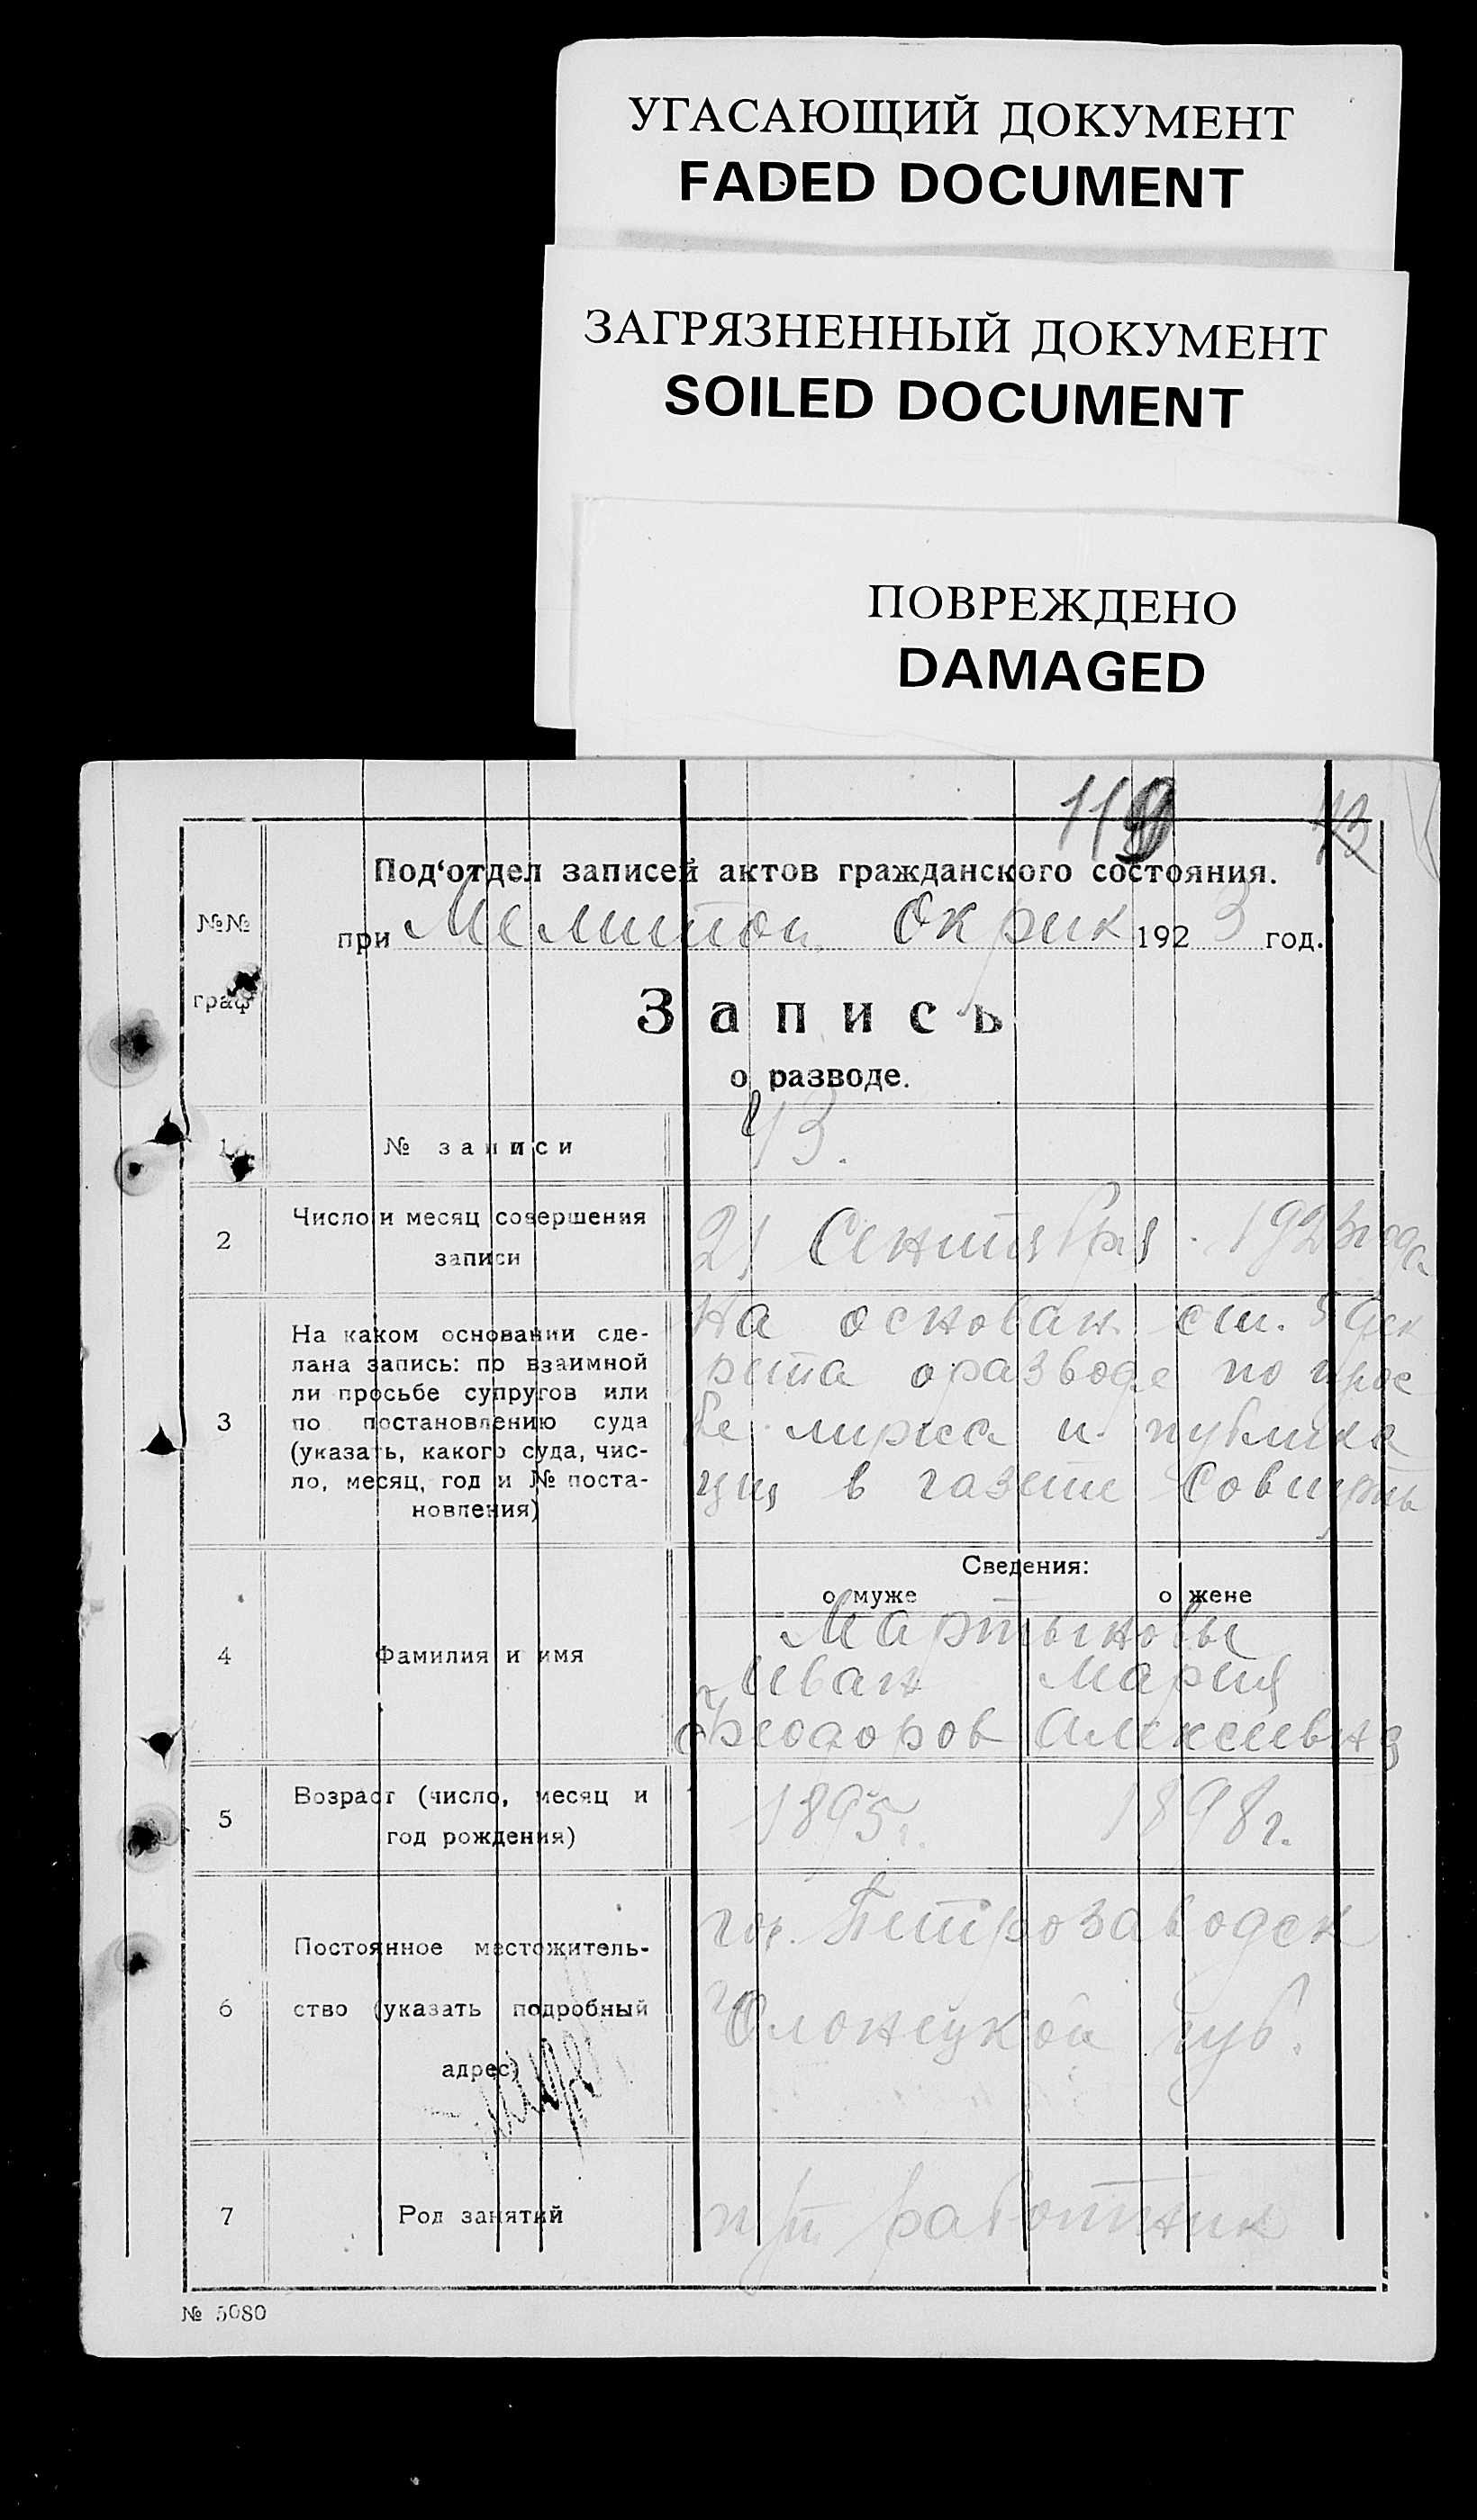 УГАСАЮЩИЙ ДОКУМЕНТ
FADED DOCUMENT
ЗАГРЯЗНЕННЫЙ ДОКУМЕНТ
SOILED DOCUMENT
ПОВРЕЖДЕНО
DAMAGED
119 73
Под‘отдел записей актов гражданского состояния.
№№
граф
при Мелитоп. Окрик 1923 год.
Запись
о разводе.
1 № записи 73.
2 Число и месяц совершения записи
21 Сентября 1923 года
3 На каком основании сде-
лана запись: по взаимной
ли просьбе супругов или
по постановлению суда
(указать, какого суда, чис-
ло, месяц, год и № поста-
новления)
На основан. ст. 5 дек
рета о разводе по прос
бе мужа и публика
ции в газете
Сведения:
о муже о жене
4 Фамилия и имя
Мартыновы
Иван Мария
Феодоров Алексеевна
5 Возраст (число, месяц и
год рождения)
1895 г. 1898 г.
6 Постоянное местожитель-
ство (указать подробный
адрес)
гор. Петрозаводск
Олонецкой губ.
7 Род занятий
работник
№ 5080